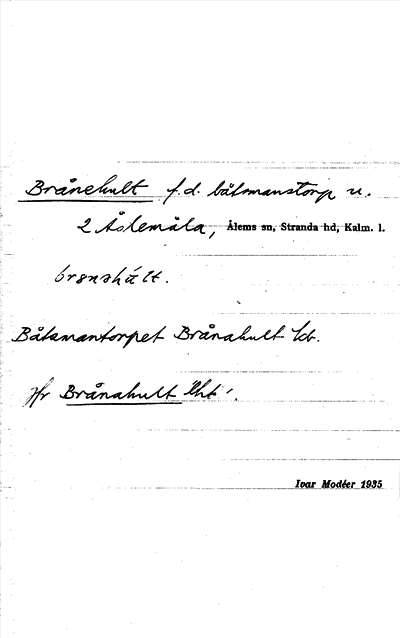 Brånehult f.d. båtsmanstorp u.
2 Åslemåla, Ålems sn, Stranda hd, Kalm. l.
Båtsmantorpet Brånahult
Jfr Brånahult
Ivar Modéer 1935